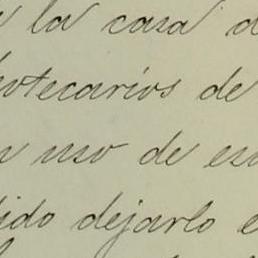 la casa d
otecarios de
n uso de es
ido dejarlo e